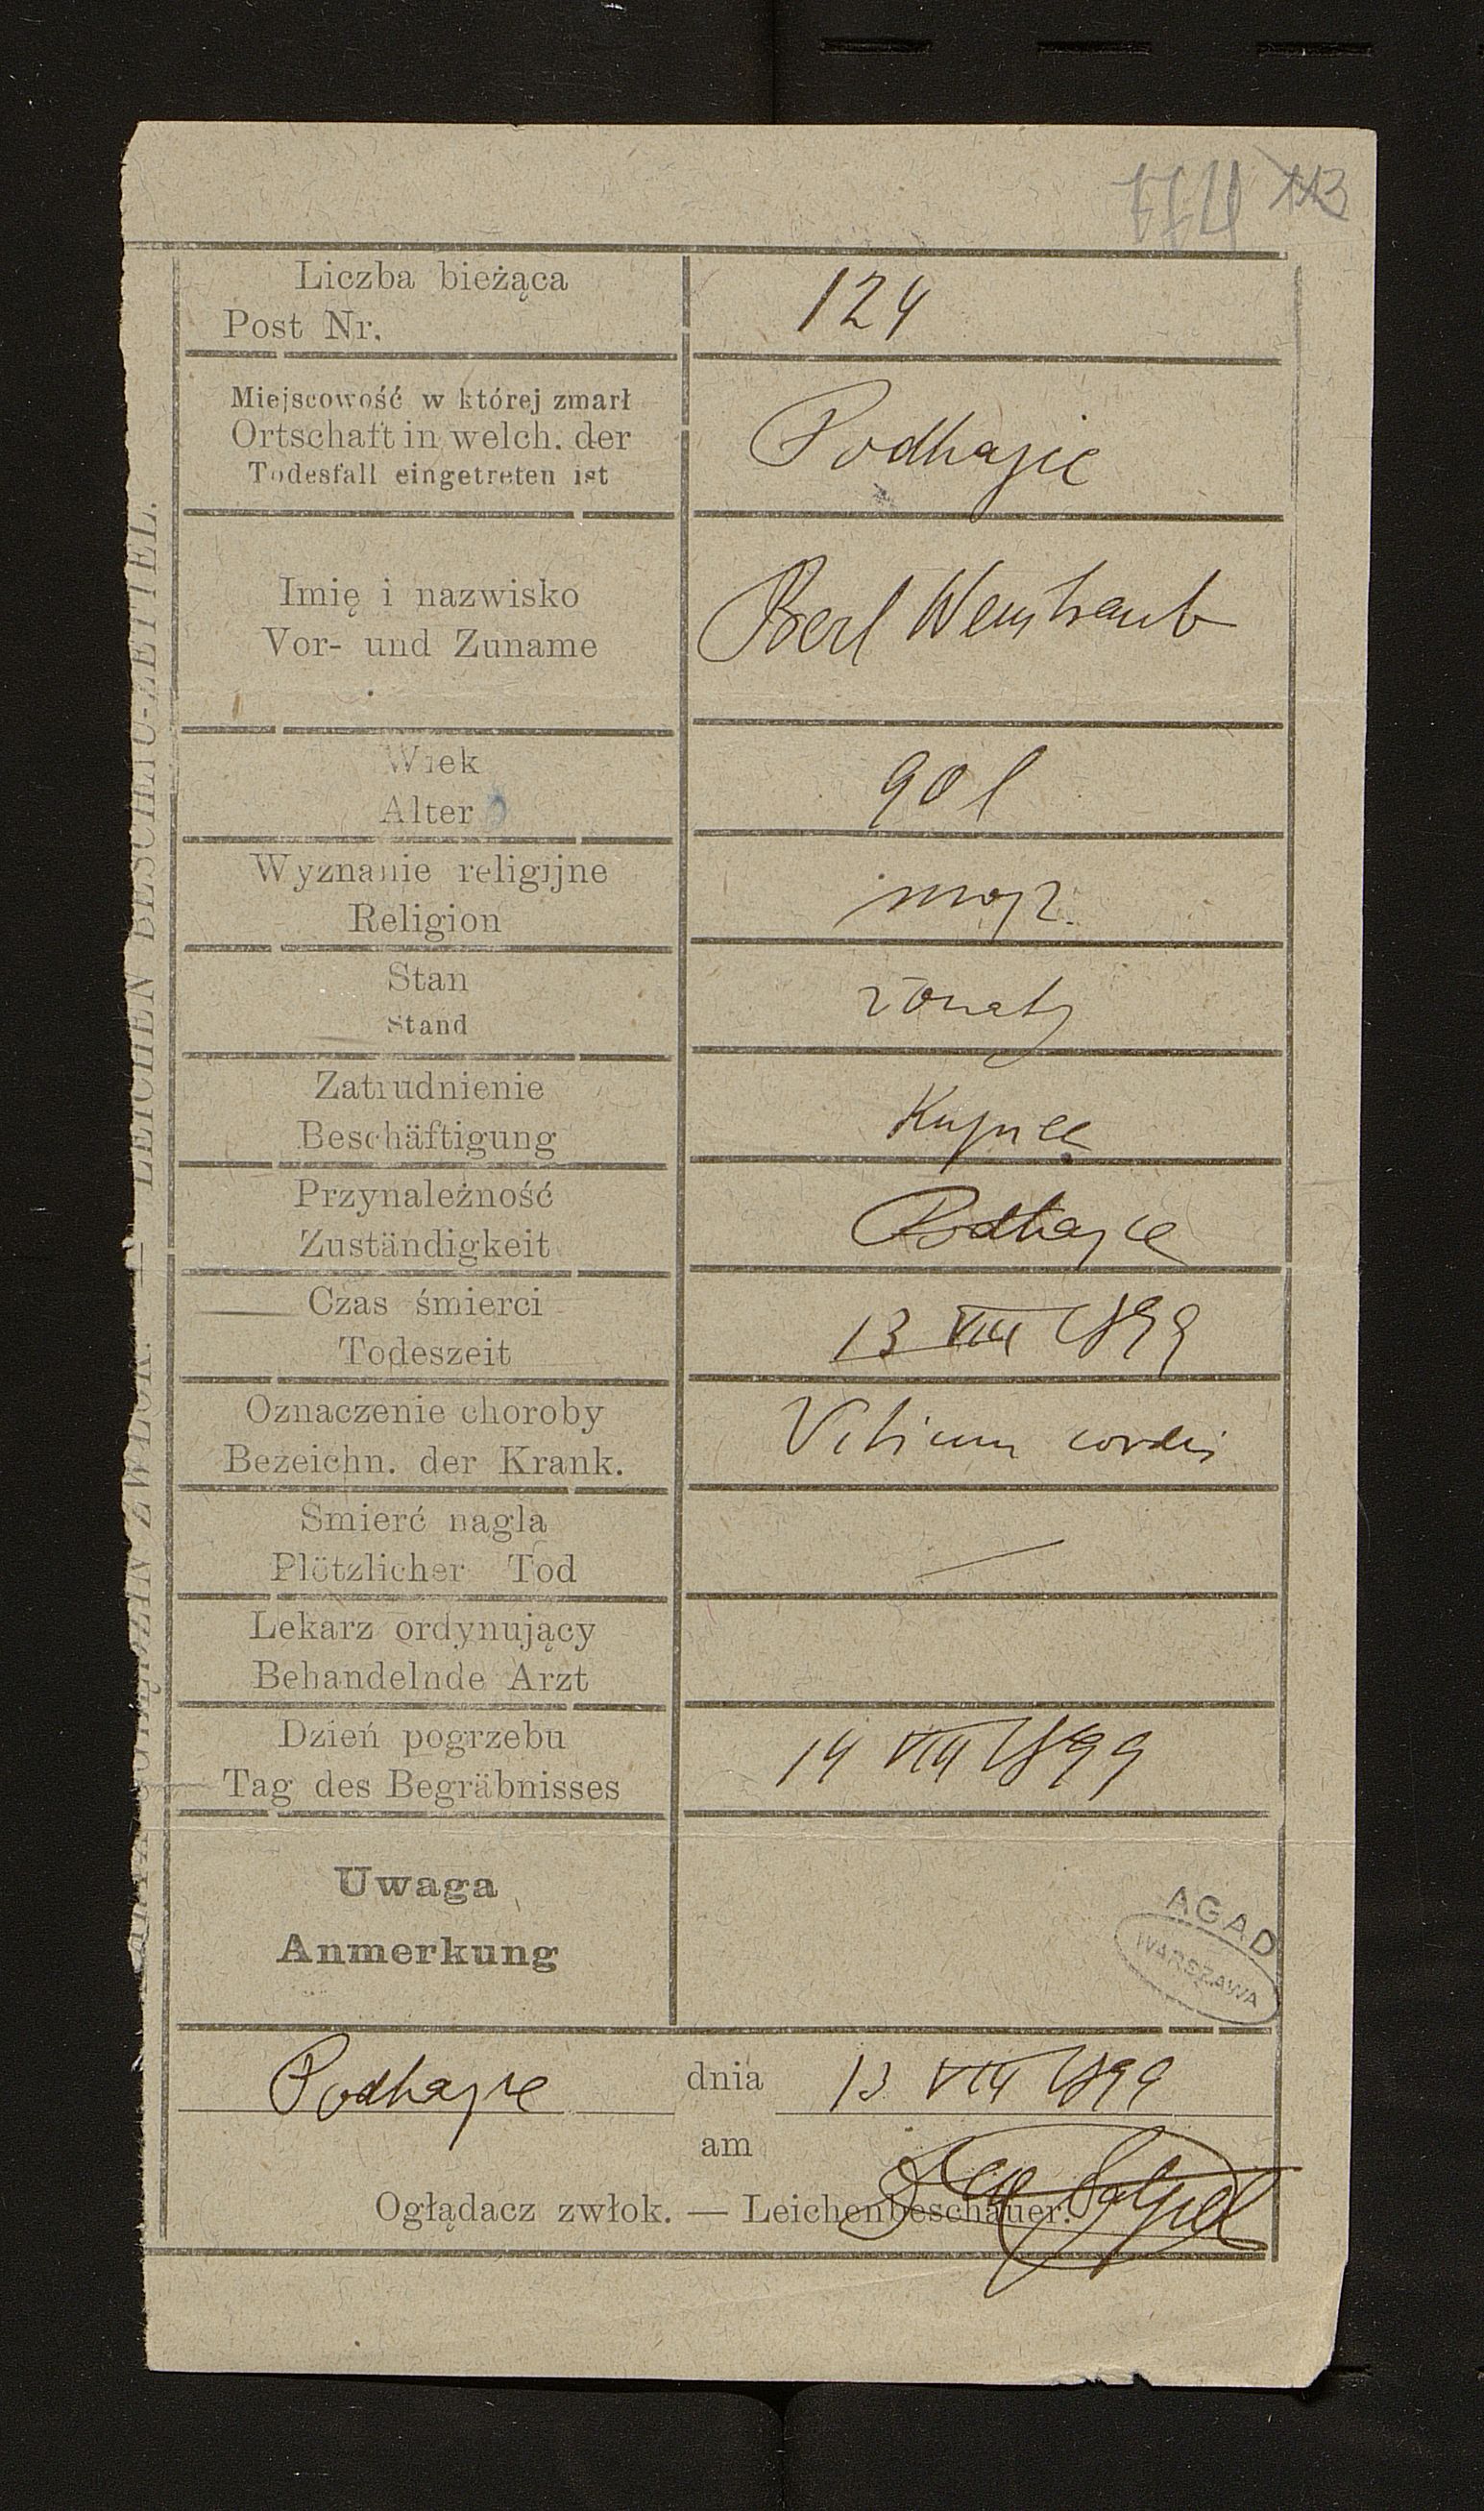 114 113
Liczba bieżąca
Post Nr.
124
Miejscowość w której zmarł
Ortschaft in welch. der
Todesfall eingetreten ist
Podhajce
Imię i nazwisko
Vor- und Zuname
Berl Weintraub
Wiek
Alter
90 l
Wyznanie religijne
Religion
mojż.
Stan
Stand
żonaty
Zatrudnienie
Beschäftigung
Kupiec
Przynależność
Zuständigkeit
Podhajce
Czas śmierci
Todeszeit
13 VIII 1899
Oznaczenie choroby
Bezeichn. der Krank.
Vitium cordis
Smierć nagla
Plötzlicher Tod
—
Lekarz ordynujący
Behandelnde Arzt
Dzień pogrzebu
Tag des Begräbnisses
14 VIII 1899
Uwaga
Anmerkung
AGAD
WARSZAWA
Podhajce dnia 13 VIII 1899
am
Oglądacz zwłok. — Leichenbeschauer.
OGLĘDZIN ZWŁOK. — LEICHEN BESCHAU-ZETTEL.